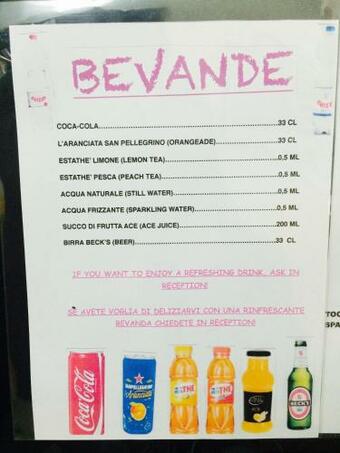 BEVANDE
COCA-COLA..................................................................33 CL
L'ARANCIATA SAN PELLEGRINO (ORANGEADE).......................33 CL
ESTATHE' LIMONE (LEMON TEA)..........................................0,5 ML
ESTATHE' PESCA (PEACH TEA)............................................0,5 ML
ACQUA NATURALE (STILL WATER)........................................0,5 ML
ACQUA FRIZZANTE (SPARKLING WATER)...............................0,5 ML
SUCCO DI FRUTTA ACE (ACE JUICE)....................................200 ML
BIRRA BECK'S (BEER)........................................................33 CL
IF YOU WANT TO ENJOY A REFRESHING DRINK, ASK IN
RECEPTION!
SE AVETE VOGLIA DI DELIZIARVI CON UNA RINFRESCANTE
BEVANDA CHIEDETE IN RECEPTION!
Coca-Cola
SANPELLEGRINO
Aranciata
THE
THE
BECK'S